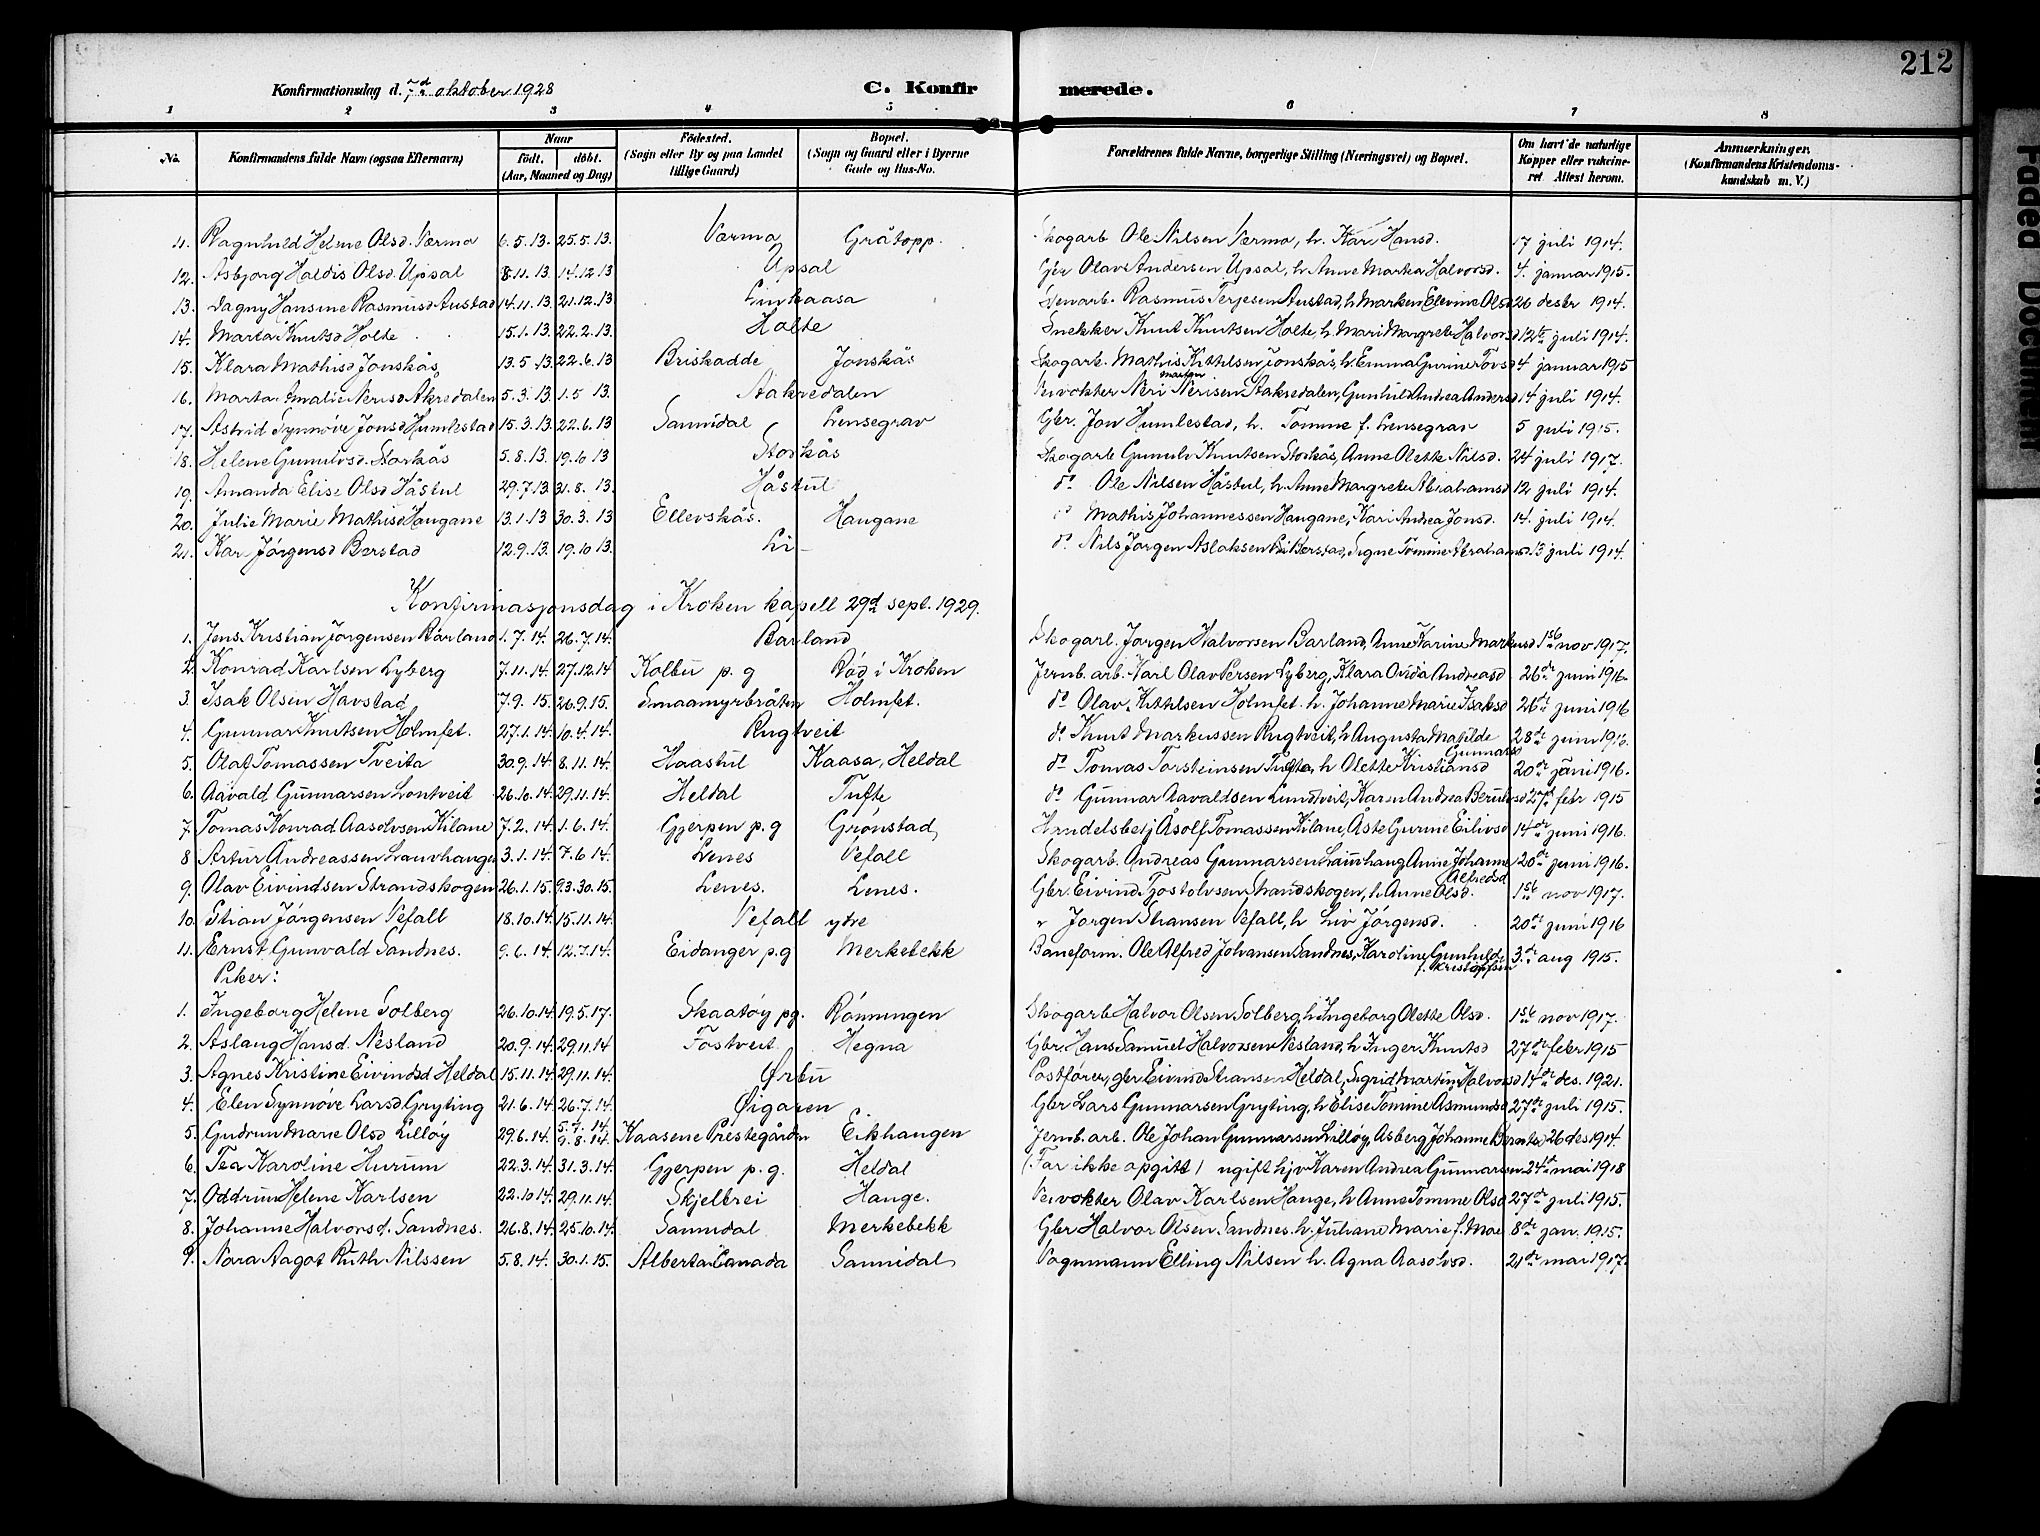 212
Konfirmationsdag d. 7de oktober 1928
C. Konfirmerede.
1 2 3 4 5 6 7 8
No. Konfirmandens fulde Navn (ogsaa Efternavn) Naar födt. döbt. (Aar, Maaned og Dag) Födested. (Sogn eller By og paa Landet tillige Gaard) Bopæl. (Sogn og Gaard eller i Byerne Gade og Hus-No. Forældrenes fulde Navne, borgerlige Stilling (Næringsvei) og Bopæl. Om havt de naturlige Kopper eller vakcineret Attest herom. Anmærkninger. (Konfirmandens Kristendomskundskab m. V.)
11. Ragnhild Helene Olsd. Værmo 6.5.13. 25.5.13. Værmo Gråtopp. Skogarb Ole Nilsen Værmo, h. Kari Hansd. 17 juli 1914.
12. Asbjørg Haldis Olsd. Upsal 8.11.13. 14.12.13 Upsal Gbr Olav Andersen Upsal, h Anne Marka Halvorsd. 4. januar 1915.
13. Dagny Hansine Rasmusd Austad 14.11.13. 21.12.13 Linkaasa Rasmus Terjesen Austad, h Maren Elevine Olsd 26 desbr 1914.
14. Marta Knutsd Holte 15.1.13. 22.2.13. Holte Snekker Knut Knutsen Holte, h. Mari Margrete Halvorsd 12te juli 1914.
15. Klara Mathisd Jonskås 13.5.13. 22.6.13 Briskodde Jonskås Skogarb. Mathis Kittelsen Jonskås, h. Emma Gurine Tovsd 4 januar 1915
16. Marta Amalie Nerisd Åkredalen 5.3.13. 1.5 13. Aakredalen Veivokter Neri Nerisen Aakredalen, Gunhild Andrea Andersd 14 juli 1914.
17. Astrid Synnöve Jonsd Humlestad 15.3.13. 22.6.13 Sannidal Lensegrav Gbr. Jon Humlestad, h. Tomine f. Lensegrav 5 juli 1915.
18. Helene Gunulvsd. Storkås 5.8.13. 19.10 13 Storkås Skogarb Gunulv Knutsen Storkås, Anne Olette Nilsd. 24 juli 1917.
19. Amanda Elise Olsd Håstul 29.7.13. 31.8. 13. Håstul do Ole Nilsen Håstul, h. Anne Margrete Abrahamsd 12 juli 1914.
20. Julie Marie Mathisd Haugane 13.1.13 30.3.13 Ellevskås. Haugane do Mathis Johannessen Haugane, Kari Andrea Jonsd. 14. juli 1914.
21. Kari Jörgensd Barstad 12.9.13. 19.10 13. Li do Nils Jörgen Aslaksen Li Barstad, Signe Tomine Abrahamsd. 3 juli 1914.
Konfirmasjonsdag i Kroken kapell 29de sept. 1929.
1. Jens Kristian Jorgensen Bårland 1.7.14. 26.7.14. Barland Skogarb. Jorgen Halvorsen Barland, Anne Karine Markusd 1ste nov 1917.
2. Konrad Karlsen Lyberg 7.11.14. 27.12.14 Kolbu p.g Röd i Kroken Jernb. arb. Karl Olav Persen Lyberg, Klara Ovida Andreasd 26de juni 1916.
3. Isak Olsen Havstad 7.9. 15. 26.9.15. Smaamyrbråten Holmfet. do Olav Kittilsen Holmfet. h. Johanne Marie Isaksd 26de juni 1916
4. Gunnar Knutsen Holmfet. 27.1.14. 10.4.14. Rugtveit do Knut Markussen Rugtveit, h Augusta Matilde Gunnarsd 28de juni 1916.
5. Olaf Tomassen Tveita 30.9.14. 8.11.14. Haastul Kaasa, Heldal do Tomas Torsteinsen Tufte, h Olette Kristiansd 20de juni 1916.
6. Aavald Gunnarsen Lontveit 26.10.14. 29.11.14. Heldal Tufte do Gunnar Aavaldsen Lundtveit, Karen Andrea Berulvsd 27de febr 1915
7. Tomas Konrad Aasolvsen Kilane 7.2.14. 1.6.14. Gjerpen p.g Grönstad Handelsbetj Åsolf Tomassen Kilane, Åste Gurine Eilivsd 14de juni 1916.
8 Artur Andreassen Lauvhangen 3.1.14. 7.6 14. Lenes Vefall Skogarb. Andreas Gunnarsen Lauvhang Anne Johanne Alfredsd 20de juni 1916.
9. Olav Eivindsen Strandskogen 26.1.15. 9.3.30.15. Lenes. Lenes. Gbr. Eivind Tjostolvsen Strandskogen, h. Anne Olsd. 1ste nov 1917.
10. Stian Jörgensen Vefall 18.10.14. 15.11.14. Vefall ytre " Jorgen Stiansen Vefall, h Liv Jörgensd. 20de juni 1916
11. Ernst Gunvald Sandnes. 9.6.14. 12.7.14. Eidanger p.g Merkebekk Baneform. Ole Alfred Johansen Sandnes, Karoline Gunhild f. Kristoffsen 3de aug 1915.
Piker:
1. Ingeborg Helene Solberg 26.10.14. 19.5.17. Skaatöy pg. Rönningen Skogarb Halvor Olsen Solberg, h Ingeborg Olette Olsd. 1ste nov 1917.
2. Aslaug Hansd. Nesland 20.9.14. 29.11.14 Fostveit Hegna Gbr. Hans Samuel Halvorsen Nesland, h Inger Knutsd 27de febr 1915
3. Agnes Kristine Eivindsd Heldal 15.11.14. 29.11.14. Ørbu Postförer, gbr Eivind Stiansen Heldal, Sigrid Martine Halvorsd 14de des. 1921.
4. Elen Synnöve Larsd Gryting 21.6.14. 26.7.14. Øigaren Gbr Lars Gunnarsen Gryting, h Elise Tomine Asmundsd 27de juli 1915.
5. Gudrun Marie Olsd Lillöy 29.6.14. 5.7.14. 9.8.14. Kaasene Prestegården Eikhaugen Jernb. arb. Ole Johan Gunnarsen Lillöy, Asberg Johanne 26 des 1914.
6. Tea Karoline Hurum 22.3.14. 31.3.14. Gjerpen p.g. Heldal (Far ikke opgitt) ugift hjv Karen Andrea Gunnarsen 24de mai 1918
7. Oddrun Helene Karlsen 22.10.14. 29.11.14. Skjelbrei Hauge. Veivokter Olav Karlsen Hauge, h Anne Tomine Olsd 27de juli 1915.
8. Johanne Halvorsd. Sandnes. 26.8.14. 25.10.14. Sannidal Merkebekk Gbr Halvor Olsen Sandnes. h. Juliane Marie f. Moe 8de jan. 1915.
9. Nora Aagot Ruth Nilssen 5.8.14. 30.1.15. Alberta Canada Sannidal Vognmann Elling Nilsen h. Agna Aasolvsd. 21de mai 1917.
Faded Document